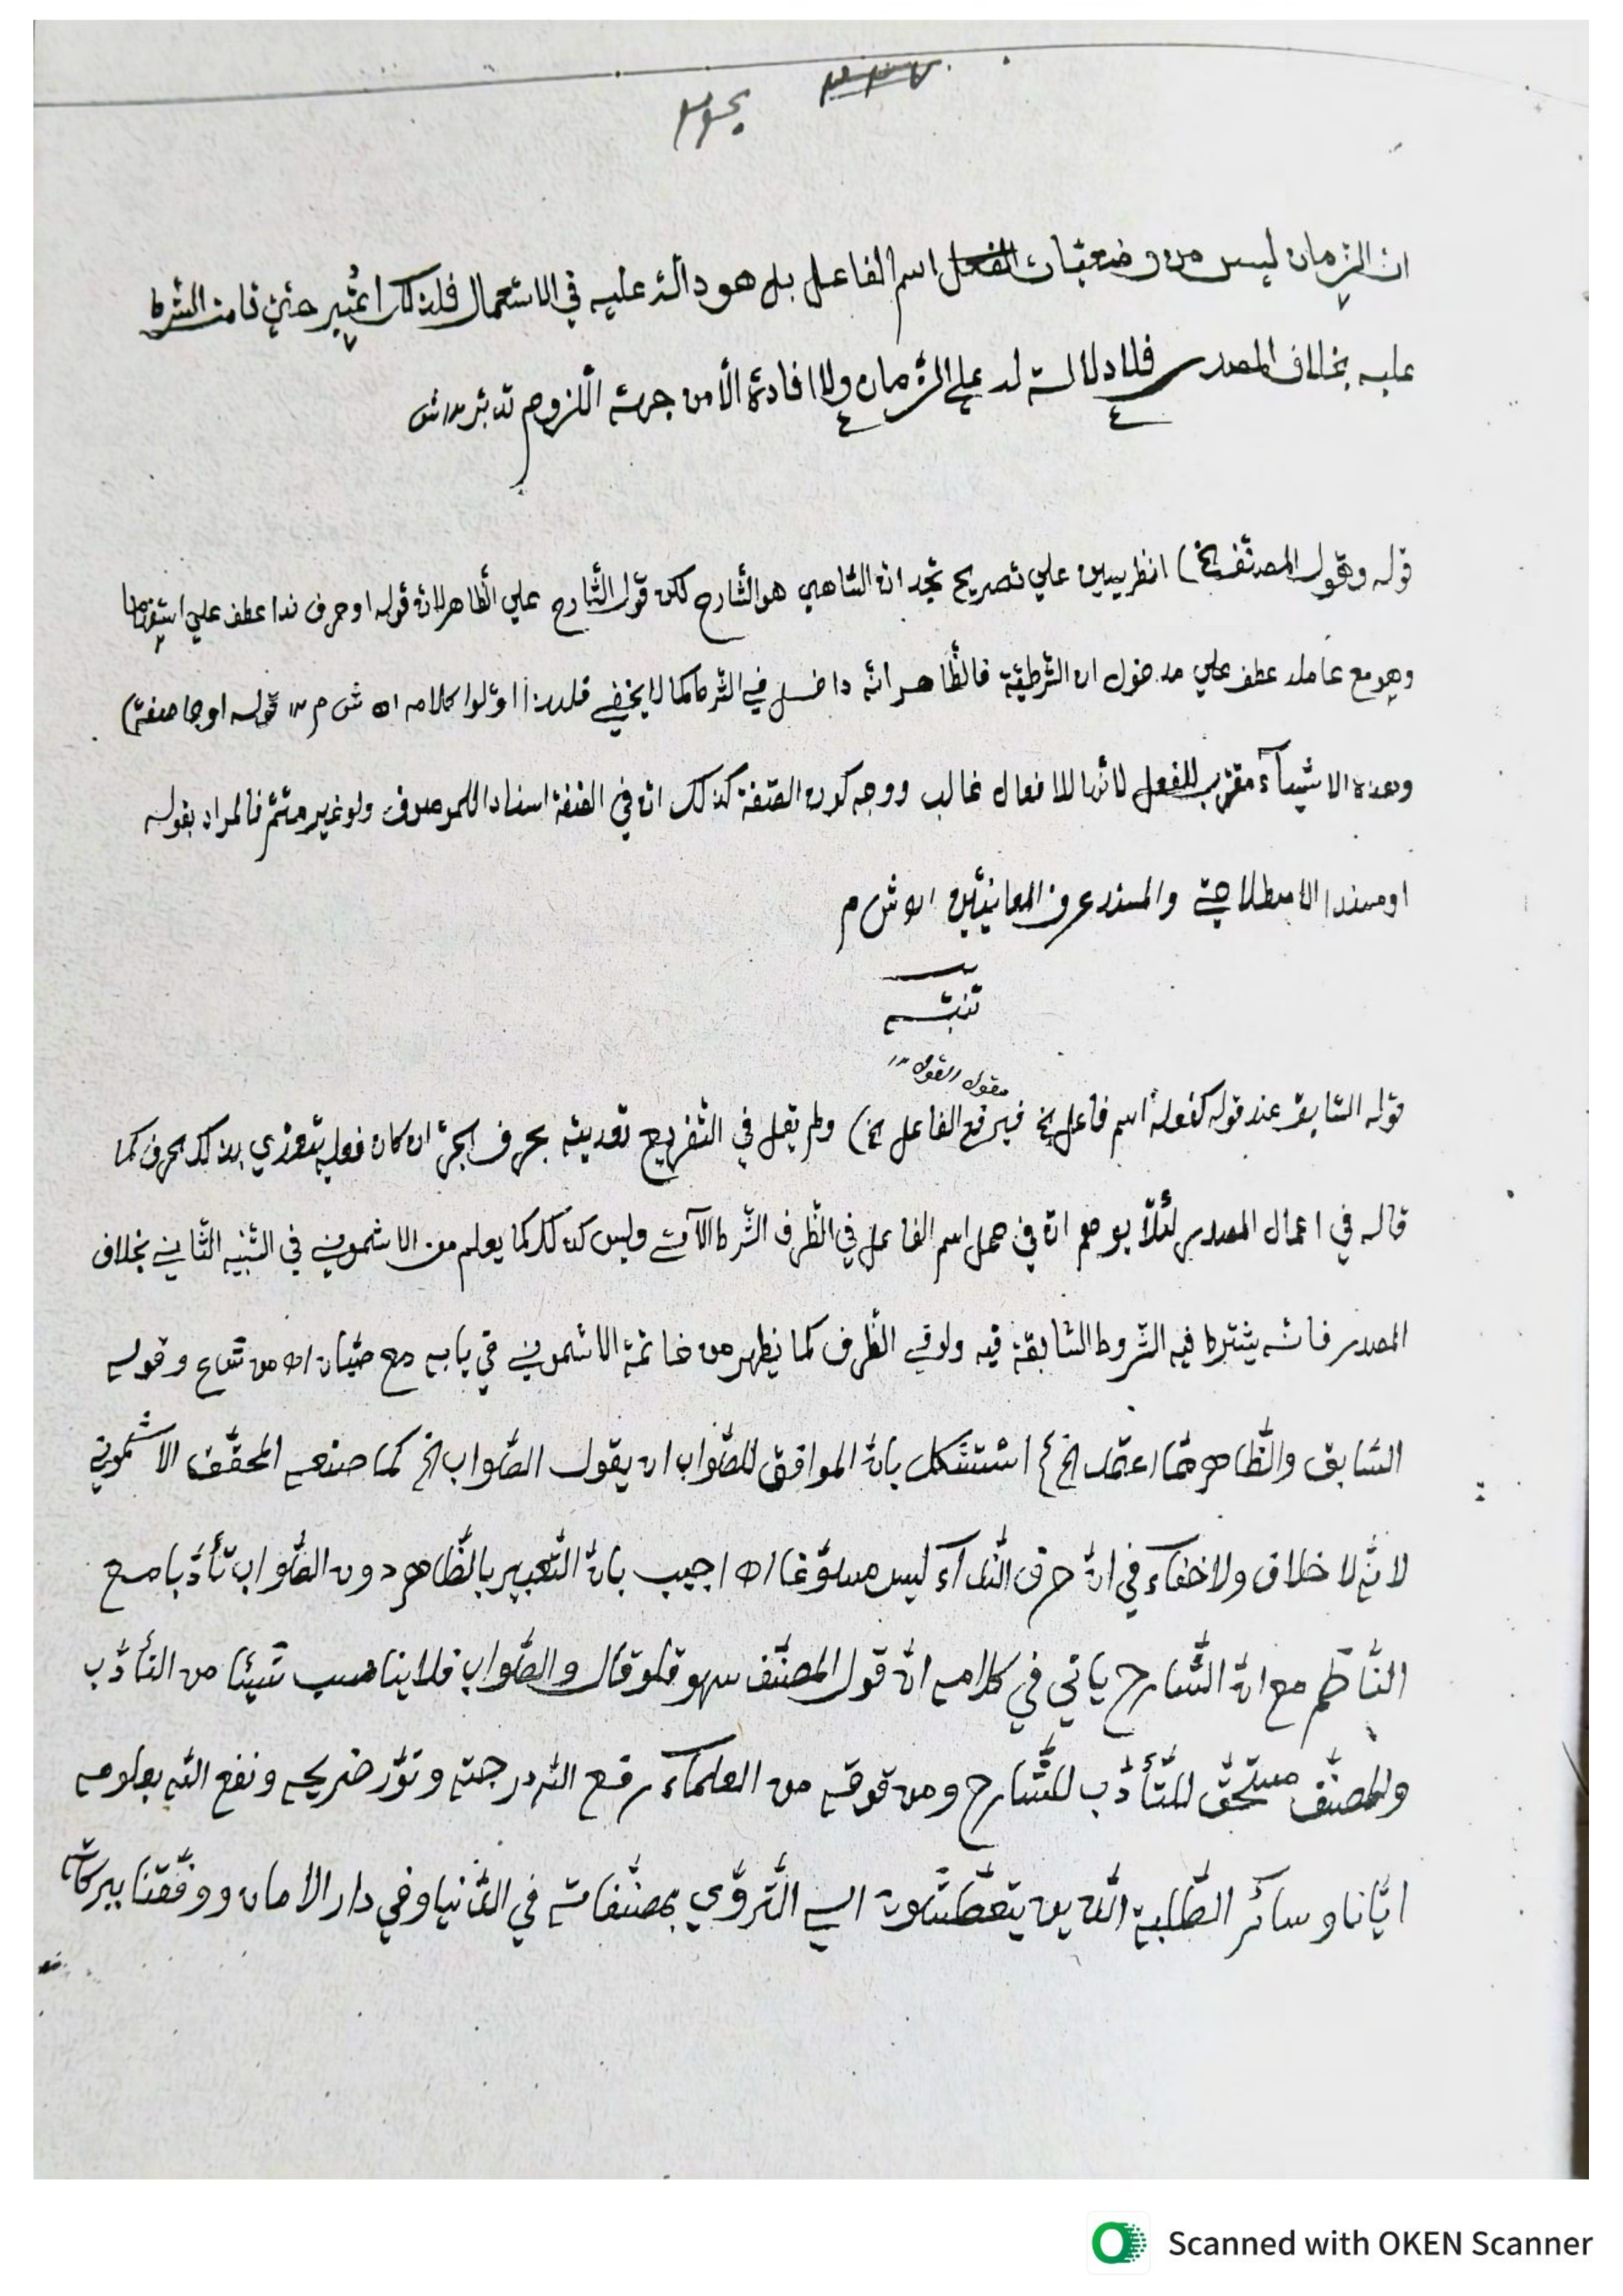 ان الزمان ليس من وضعيات الفعل اسم الفاعل بل هو دالّ عليه في الاستعمال فلذلك اعتبر حتي الشرط
عليه بخلاف المصدر فلا دلالة له علي الزمان ولا افادة الا من جهة اللزوم تدبر ش
قوله وقول المصنف الخ) انظر يسين علي تصريح تجد ان الساهي هو الشارح لكن قول الشارح علي الظاهر لانّ قوله او حرف ندا عطف علي استفهاما
وهو مع عامله عطف علي مدخول ان الشرطية فالظاهر انّه داخل في الشرط كما لا يخفي فلهذا اوّلوا كلامه اه ش م ١٢ قوله او جا صفة)
وهذه الاشيآء مقرّب للفعل لانّها للافعال غالب ووجه كون الصّفة كذلك انّ في الصّفة اسنادا للموصوف ولو غير متمّ فالمراد بقوله
او مسندا الاصطلاحيّ والمسند عرف المعانيّين اه ش م
تنبيه
مقول القول ١٢
قوله السّابق عند قوله كفعله اسم فاعل الخ فيرفع الفاعل الخ) ولم يقل في التّفريع تعديته بحرف الجرّ ان كان فعله يتعدّي بذلك الحرف كما
قاله في اعمال المصدر لئلّا يوهم انّ في عمل اسم الفاعل في الظّرف الشّرط الآتي وليس كذلك كما يعلم من الاشموني في التّنبيه الثّاني بخلاف
المصدر فانّه يشترط فيه الشّروط السّابقة فيه ولو في الظّرف كما يظهر من خاتمة الاشموني في بابه مع صبّان اه من ش ع وقوله
السّابق والظّاهر ممّا اعتمد الخ} استشكل بانّ الموافق للصّواب ان يقول الصّواب الخ كما صنعه المحقّق الاشموني
لانّه لا خلاف ولا خفاء في انّ حرف النّدآء ليس مسوّغا اه اجيب بانّ التّعبير بالظّاهر دون الصّواب تأدّبا مع
النّاظم مع انّ الشّارح ياتي في كلامه انّ قول المصنّف سهو فلو قال والصّواب فلا يناسب شيئا من التأدّب
والمصنّف مستحقّ للتّأدّب للشّارح ومن فوقه من العلمآء رفع اللّه درجته ونوّر ضريحه ونفع اللّه بعلومه
ايّانا وسائر الطّلبة الّذين يتعطّشون الي التّروّي بمصنّفاته في الدّنيا وفي دار الامان ووفّقنا ببركاته
Scanned with OKEN Scanner